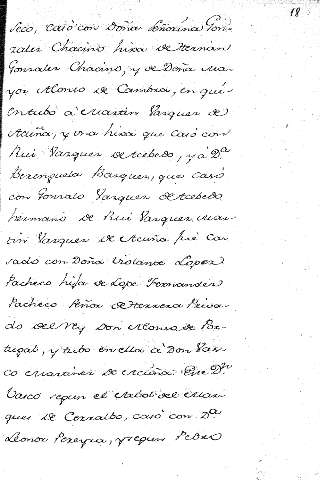 18
Seco, casó con Doña Señorina Gon-
zalez Chacino hixa de Hernan
Gonzalez Chacino, y de Doña Ma-
yor Alonso de Cambra, en qui-
en tubo a Martin Vazquez de
Acuña, y una hixa que casó con
Rui Vazquez de Acebedo, y á D.ª
Berenguela Vazquez, que casó
con Gonzalo Vazquez de Acebedo
hermano de Rui Vazquez, Mar-
tin Vazquez de Acuña fué Ca-
sado con Doña Violante Lopez
Pacheco hija de Lope Fernandez
Pacheco Señor de Ferreira Priva-
do del Rey Don Alonso de Por-
tugal, y tubo en ella á Don Vas-
co Martinez de Acuña. Este D.n
Vasco segun el Arbol del Mar-
ques de Cerralbo, casó con D.ª
Leonor Pereyra, y segun Pedro